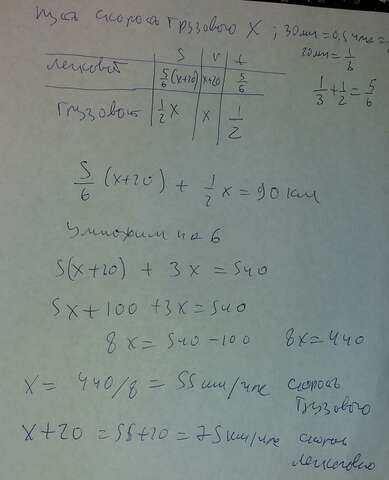 пусть скорость грузового X ; 30 мин = 0,5 часа =
20 мин = 1/6
S V t
легковой 5/6 (x+20) x+20 5/6
грузовой 1/2 x x 1/2
1/3 + 1/2 = 5/6
5/6 (x+20) + 1/2 x = 90 км
умножим на 6
5(x+20) + 3x = 540
5x + 100 + 3x = 540
8x = 540 - 100 8x = 440
x = 440/8 = 55 км/час скорость грузового
x + 20 = 55 + 20 = 75 км/час скорость легкового